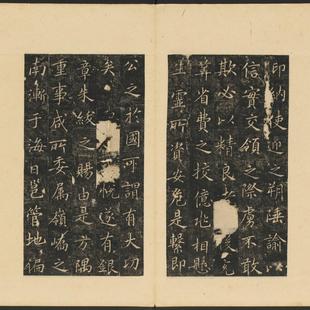 即納使迎之朔陲諭以
信實交領之際虜不敢
欺必以精良充
筭省費之校億兆相懸
生靈所資安危是繫即
公之於國可謂有大功
矣悅遂有銀
章朱紱之賜由是方隅
重事咸所委属嶺嶠之
南漸于海曰邕管地偏